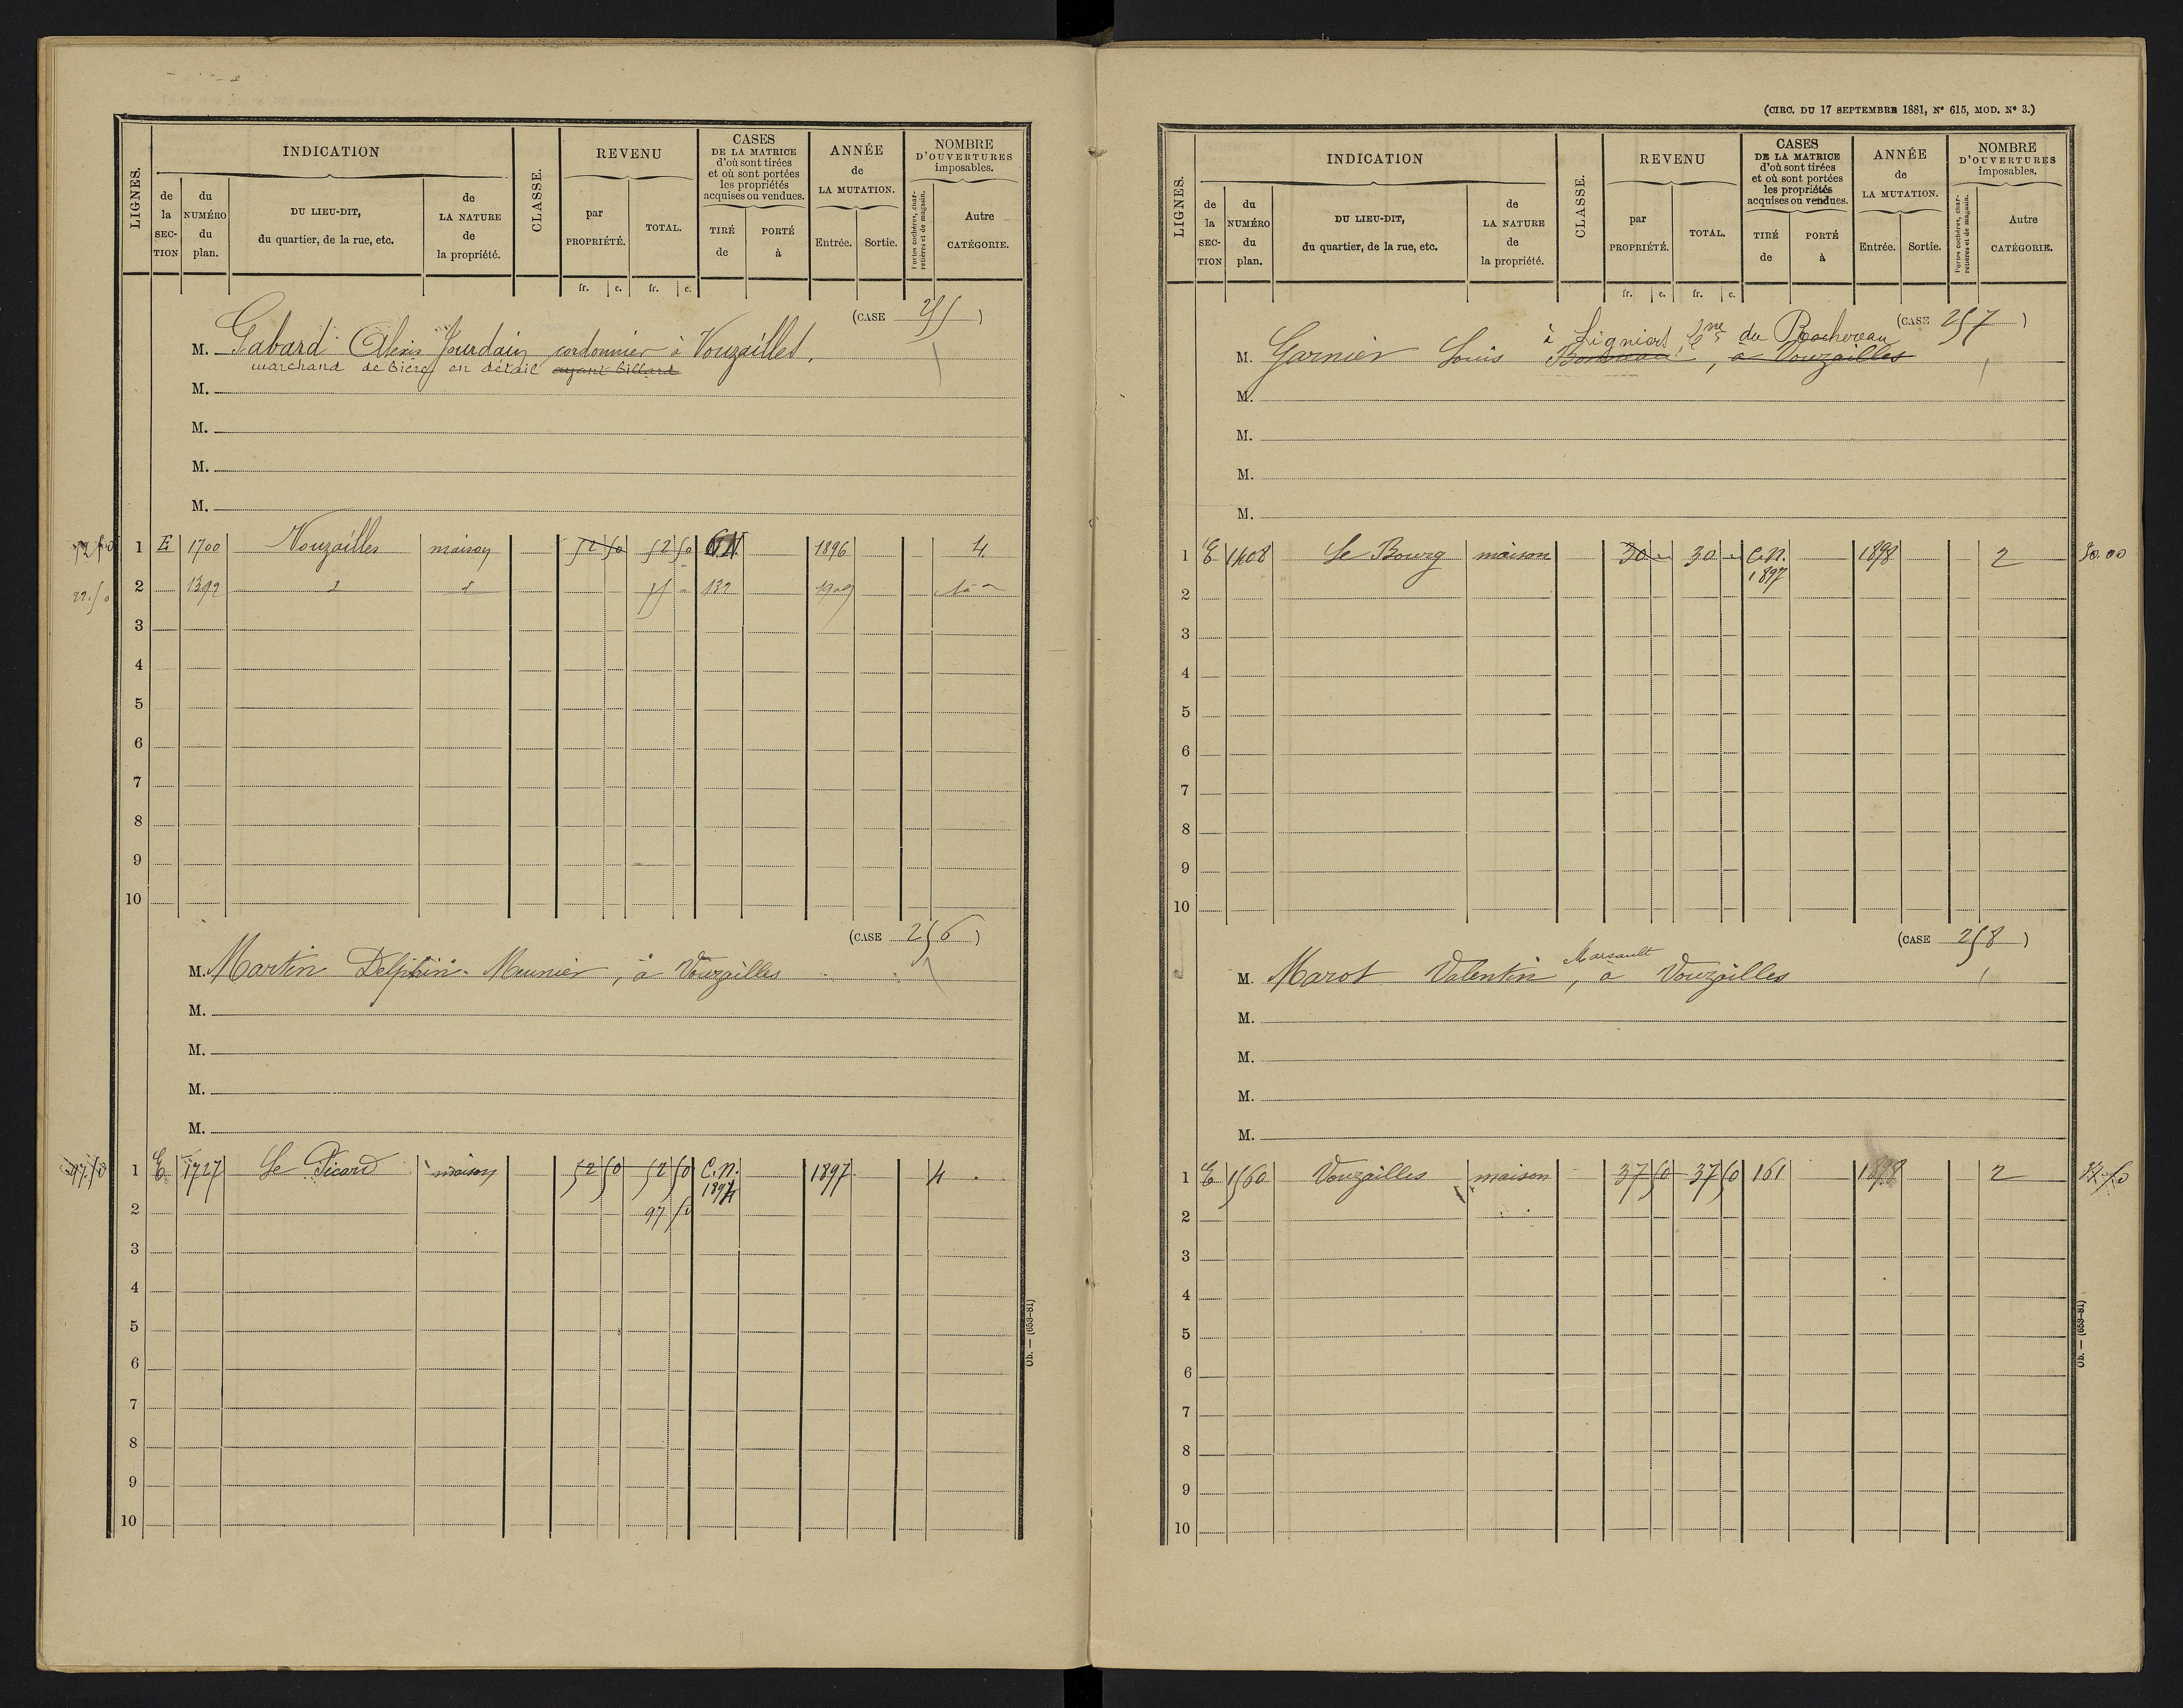 LIGNES.
INDICATION
CLASSE.
REVENU
CASES
DE LA MATRICE
d'où sont tirées
et où sont portées
les propriétés
acquises ou vendues.
ANNÉE
de
LA MUTATION.
NOMBRE
D'OUVERTURES
imposables.
de la SECTION
du NUMÉRO du plan.
DU LIEU-DIT,
du quartier, de la rue, etc.
de LA NATURE de la propriété.
par PROPRIÉTÉ.
TOTAL.
TIRÉ de
PORTÉ à
Entrée.
Sortie.
Portes cochères, charretières et de magasin.
Autre CATÉGORIE.
fr. c. fr. c.
(CASE 255)
M. Gabard Alexis Jourdain cordonnier à Vouzailles.
marchand de bière en détail ayant billard
M.
M.
M.
M.
1 E 1700 Vouzailles maison 52 50 52 50 C.N. 1896 4
22.50 2 1392 d d 55 132 1909
3
4
5
6
7
8
9
10
(CASE 256)
M. Martin Delphin-Meunier, à Vouzailles
M.
M.
M.
M.
97.50 1 E 1727 Le Picard maison 52 50 52 50 C.N. 1897 4
1894
2 97 50
3
4
5
6
7
8
9
10
Ob. — (653-81)
(CIRC. DU 17 SEPTEMBRE 1881, N° 615, MOD. N° 3.)
LIGNES.
INDICATION
CLASSE.
REVENU
CASES
DE LA MATRICE
d'où sont tirées
et où sont portées
les propriétés
acquises ou vendues.
ANNÉE
de
LA MUTATION.
NOMBRE
D'OUVERTURES
imposables.
de la SECTION
du NUMÉRO du plan.
DU LIEU-DIT,
du quartier, de la rue, etc.
de LA NATURE de la propriété.
par PROPRIÉTÉ.
TOTAL.
TIRÉ de
PORTÉ à
Entrée.
Sortie.
Portes cochères, charretières et de magasin.
Autre CATÉGORIE.
fr. c. fr. c.
(CASE 257)
à Ligniers Cne du Rochereau
M. Garnier Louis, à Vouzailles
M.
M.
M.
M.
1 E 1408 Le Bourg maison 30 30 C.N. 1898 2 30.00
1897
2
3
4
5
6
7
8
9
10
(CASE 258)
Marsault
M. Marot Valentin, à Vouzailles
M.
M.
M.
M.
1 E 1560 Vouzailles maison 37 50 37 50 161 1898 2
2
3
4
5
6
7
8
9
10
Ob. — (653-81)